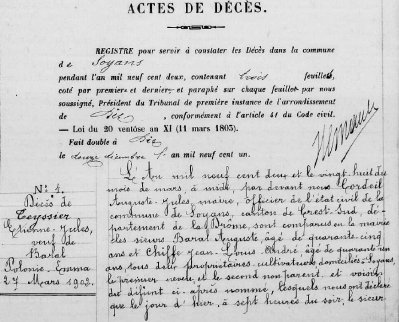 ACTES DE DÉCÈS.
REGISTRE pour servir à constater les Décès dans la commune
de Soyans
pendant l'an mil neuf cent deux, contenant trois feuillets,
coté par premier et dernier et paraphé sur chaque feuillet par nous
soussigné, Président du Tribunal de première instance de l'arrondissement
de Die, conformément à l'article 41 du Code civil.
— Loi du 20 ventôse an XI (11 mars 1803).
Fait double à Die
le douze décembre an mil neuf cent un.
N° 1.
Décès de
Teyssier
Etienne-Jules,
veuf de
Barat
Polonie-Emma
27 Mars 1902.
L'An mil neuf cent deux et le vingt huit du
mois de mars, à midi, par devant nous Cordeil
Auguste-Jules, maire, officier de l'état civil de la
commune de Soyans, canton de Crest-Sud, dé-
partement de la Drôme, sont comparus en la mairie
les sieurs Barat Auguste, âgé de quarante-cinq
ans et Chiffe Jean-Louis-André, âgé de quarante un
ans, tous deux propriétaires cultivateurs domiciliés à Soyans,
le premier neveu et le second non parent et voisin
du défunt ci-après nommé, lesquels nous ont déclaré
que le jour d'hier, à sept heures du soir, le sieur